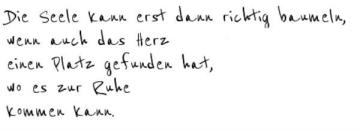 Die Seele kann erst dann richtig baumeln,
wenn auch das Herz
einen Platz gefunden hat,
wo es zur Ruhe
kommen kann.